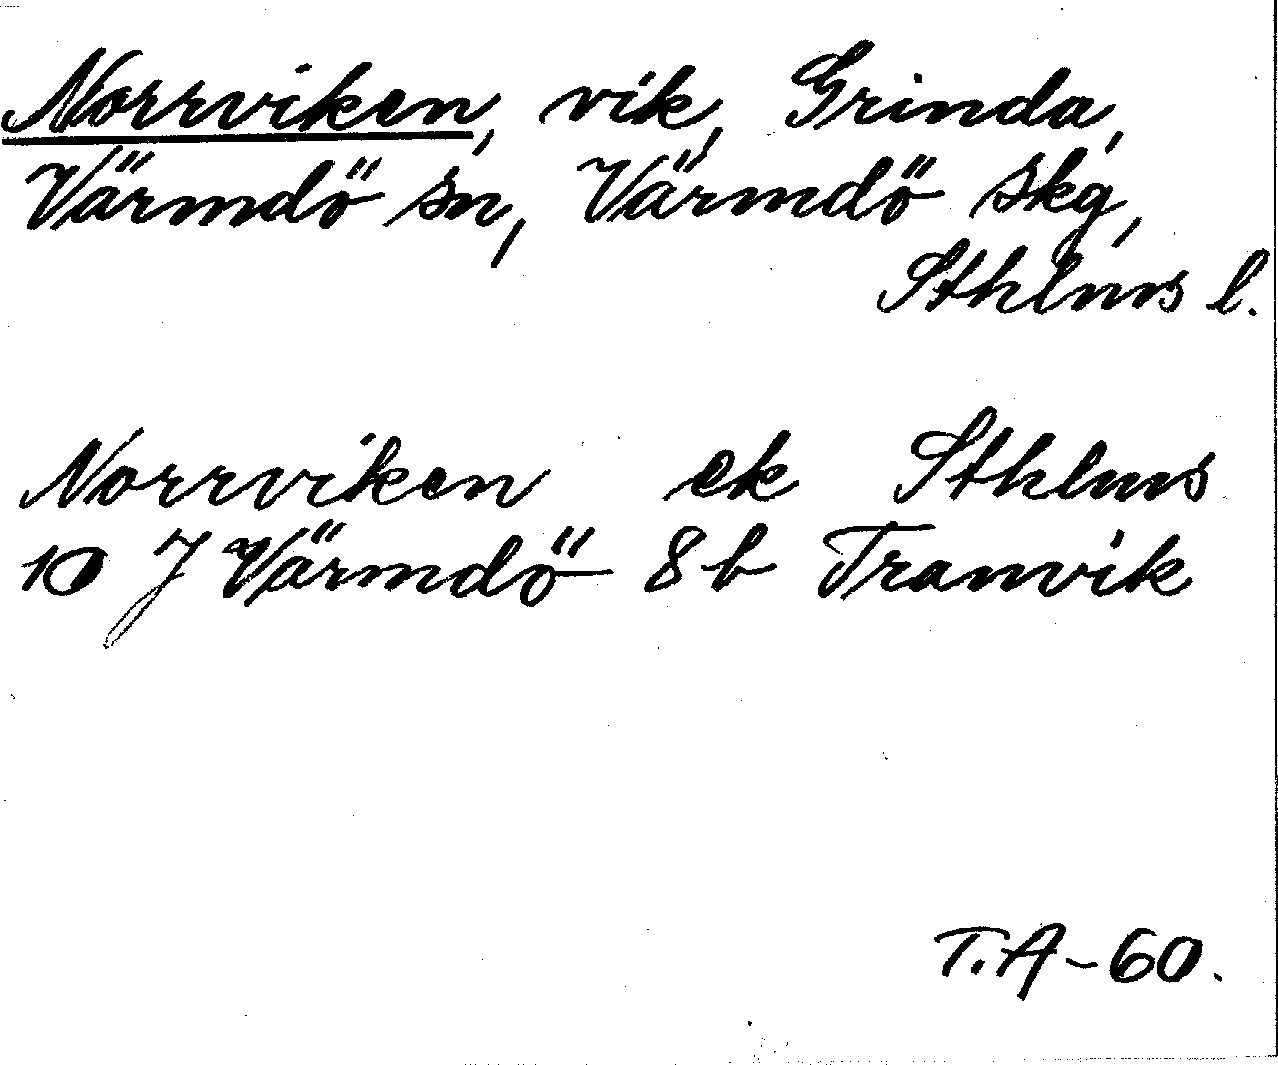 Norrviken, vik, Grinda,
Värmdö sn, Värmdö skg,
Sthlms l.
Norrviken ek Sthlms
10 J Värmdö 8b Tranvik
T.A-60.